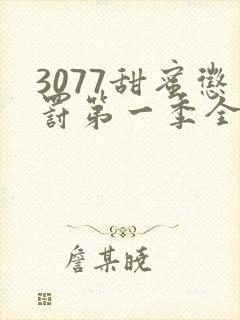 3077甜蜜惩
罚第一季全
詹某晓